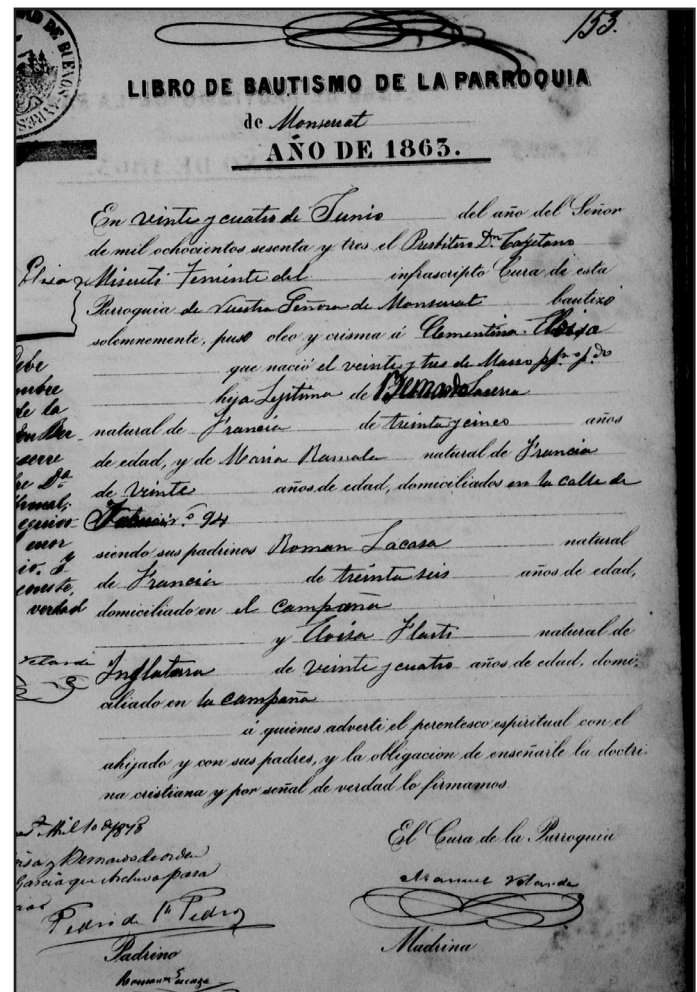 153.
DAD DE BUENOS-AYRES
LIBRO DE BAUTISMO DE LA PARROQUIA
de Monserrat
AÑO DE 1863.
En veinte y cuatro de Junio del año del Señor
de mil ochocientos sesenta y tres el Presbitero Dn. Cayetano
Eloisa y
Miserti Teniente del infrascripto Cura de esta
Parroquia de Nuestra Señora de Monserrat bautizó
solemnemente, puso oleo y crisma á Clementina Eloisa
que nació el veinte y tres de Marzo
hija Lejitima de Bernardo Laserre
natural de Francia de treinta y cinco años
de edad, y de Maria Ramale natural de Francia
de veinte años de edad, domiciliados en la calle de
94
siendo sus padrinos Roman Lacasa natural
de Francia de treinta seis años de edad,
domiciliado en el campaña
y Eloisa natural de
Inglatara de veinte y cuatro años de edad, domi-
ciliado en la campaña
á quienes adverti el perentesco espiritual con el
ahijado y con sus padres, y la obligacion de enseñarle la doctri-
na cristiana y por señal de verdad lo firmamos
debe
mbre
de la
serre
re Da.
equivo-
error
io. y
conste,
verdad
Velarde
1878
y Bernardo de orden
Garcia que Archivo pasa
El Cura de la Parroquia
Manuel Velarde
Pedro de Pedro
Padrino
Madrina